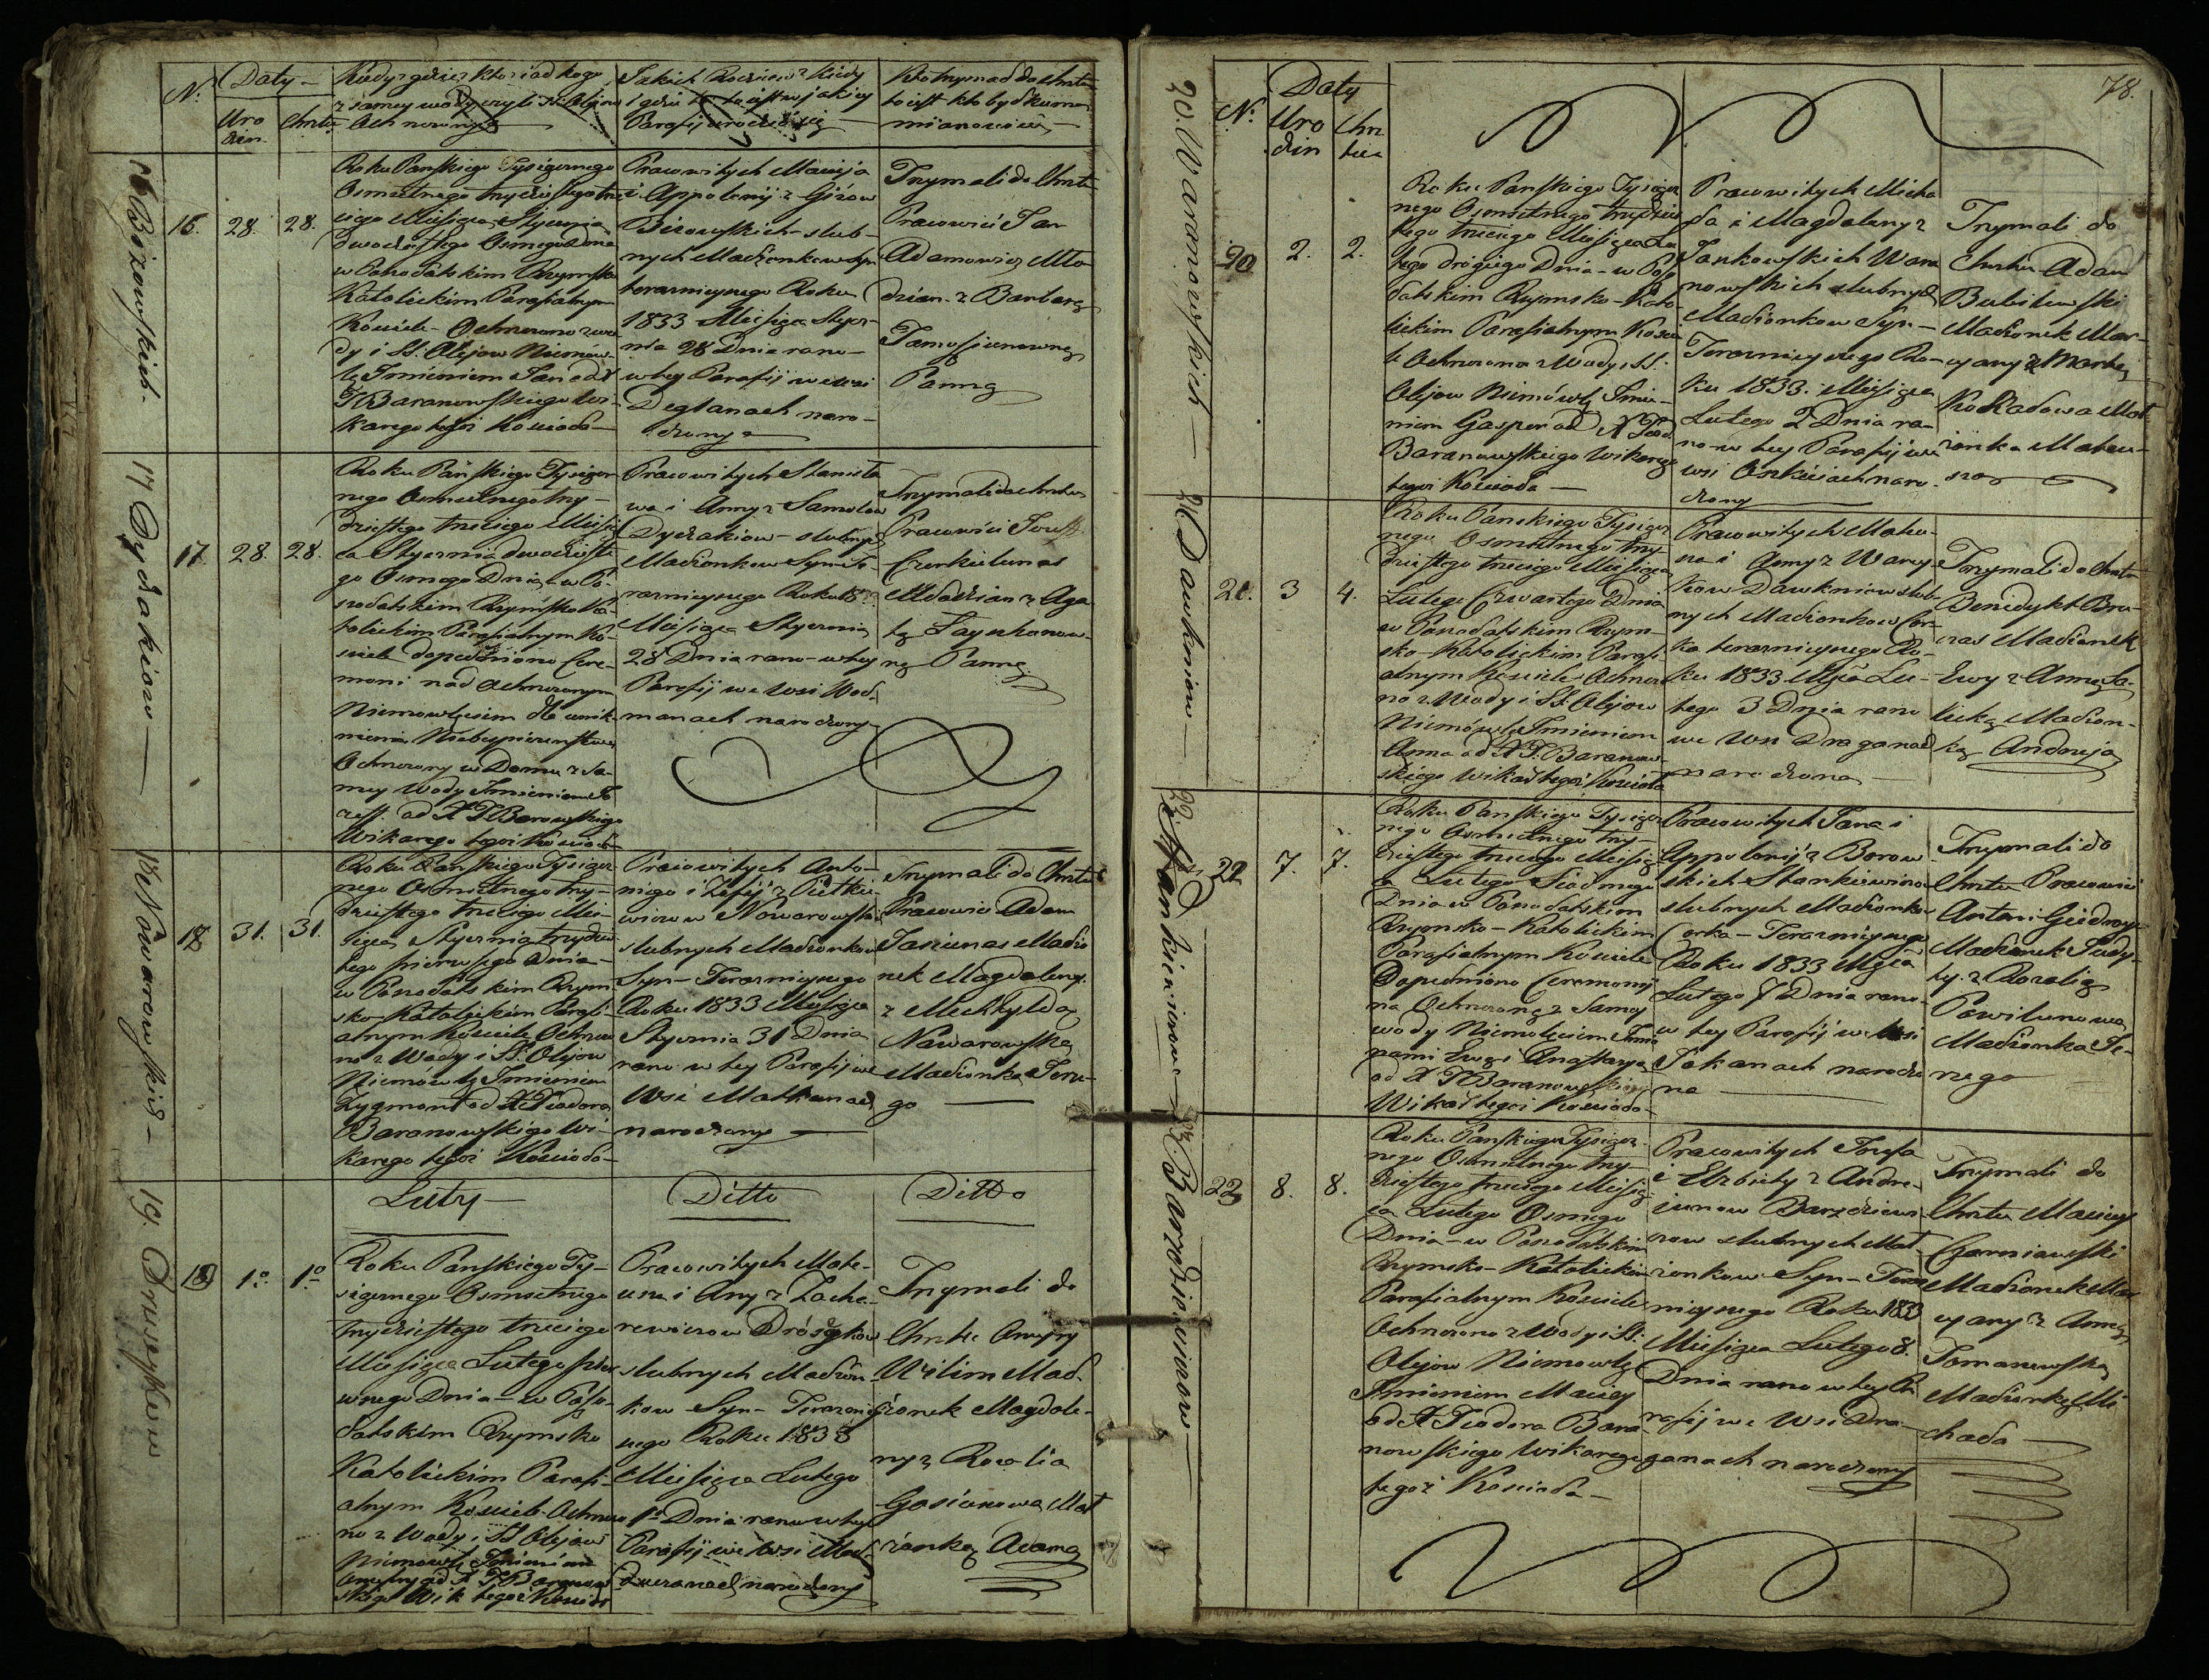 N.
Daty
Uro
dzin.
Chrztu
Kiedy gdzie kto i od kogo
z samey wody czyli i SS. Olejow
Ochrzczony
Jakich Rodzicow kiedy
i gdzie to iest w jakiey
Parafij urodził się
Kto trzymał do chrztu
to iest kto był kumem
mianowicie
16 Bizowskich.
16. 28. 28.
Roku Pańskiego Tysiącznego
Osmsetnego trzydziestego trze
ciego Miesiąca Stycznia
dwudziestego Osmego Dnia
w Ponodałskim Rzymsko
Katolickim Parafialnym
Kościele Ochrzczono z wo
dy i SS. Olejow Niemow
lę Imieniem Jan od X
T Baranowskiego Wi-
karego tegoż Kościoła
Pracowitych Macieja
i Appolonij z Giżow
Bizowskich slub-
nych Małżonkow syn
terazniejszego Roku
1833 Miesiąca Stycz-
nia 28 Dnia rano
w tey Parafij w wsi
Deglanach naro-
dzony
Trzymali do Chrztu
Pracowici Jan
Adamowicz Mło
dzian z Barbarą
Tamosiunowną
Panną
17 Dyżakiow
17. 28. 28.
Roku Pańskiego Tysiącz
nego Osmsetnego trzy-
dziestego trzeciego Miesią
ca Stycznia dwudzieste
go Osmego Dnia w Po-
nodałskim Rzymsko Ka-
tolickim Parafialnym Ko-
sciele dopełniono Cere-
moni nad Ochrzczonym
Niemowlęciem dla unik-
nienia Niebezpieczenstwa
Ochrzczony w Domu z sa-
mey Wody Imieniem Jo
zeff od X T Baranowskiego
Wikarego tegoż Kościoła
Pracowitych Stanisła
wa i Anny z Samolow
Dyżakiow slubnych
Małżonkow Syn Te-
razniejszego Roku 1833
Miesiąca Stycznia
28 Dnia rano w tey
Parafij we Wsi Wod-
manach narodzony
Trzymali do chrztu
Pracowici Jozeff
Czerkielunas
Młodzian z Aga
tą Łaynkonow-
ną Panną
18 Nowarowskich
18 31. 31.
Roku Pańskiego Tysiącz
nego Osmsetnego trzy-
dziestego trzeciego Mie-
siąca Stycznia trzydzies
tego pierwszego Dnia
w Ponodałskim Rzym-
sko Katolickim Parafi-
alnym Kościele Ochrzczo
no z Wody i SS. Olejow
Niemowlę Imieniem
Zygmont od X Teodora
Baranowskiego Wi-
karego tegoż Kościoła
Pracowitych Anto-
niego i Zofij z Pietkie-
wiczow Nowarowskich
slubnych Małżonkow
Syn Terazniejszego
Roku 1833 Miesiąca
Stycznia 31 Dnia
rano w tey Parafij we
Wsi Matkunach
narodzony
Trzymali do Chrztu
Pracowici Adam
Jasiunas Małżo
nek Magdaleny
z Mechtyldą
Nawarowską
Małżonką Jerze-
go
Luty
Ditto
Ditto
19. Druseykow
19 1o. 1o
Roku Pańskiego Ty-
siącznego Osmsetnego
trzydziestego trzeciego
Miesiąca Lutego pier
wszego Dnia w Pono-
dałskim Rzymsko
Katolickim Parafi-
alnym Kościele Ochrzczo
no z Wody i SS Olejow
Niemowlę Imieniem
od X T Baranow
skiego Wik tegoż Kościoła
Pracowitych Mate-
usza i Any z Zacha-
rewiczow
slubnych Małżon-
kow Syn Terazniej
szego Roku 1833
Miesiąca Lutego
1o Dnia rano w tey
Parafij we Wsi
narodzony
Trzymali do
Chrztu Onufry
Wilim Mał-
żonek Magdale-
ny z Rozalią
Gasiunową Mał
żonką Adama
78.
N.
Daty
Uro
dzin
Chrz
tu
20. Waranowskich
20 2. 2.
Roku Pańskiego Tysiącz
nego Osmsetnego trzydzies
tego trzeciego Miesiąca Lu
tego drugiego Dnia w Pono
dałskim Rzymsko-Kato
lickim Parafialnym Kościele
Ochrzczono z Wody i SS.
Olejow Niemowlę Imie-
niem Gasper od X Teod.
Baranowskiego Wikarego
tegoż Kościoła
Pracowitych Micha
ła i Magdaleny z
Jankowskich Wara
nowskich slubnych
Małżonkow Syn
Terazniejszego Ro-
ku 1833. Miesiąca
Lutego 2 Dnia ra-
no w tey Parafij we
wsi Oszkiciach naro-
dzony
Trzymali do
Chrztu Adam
Bubilewski
Małżonek Mar-
cyany z Martą
Kołładową Mał
żonką Mateu-
sza
21 Dawkniow
21. 3 4.
Roku Pańskiego Tysiącz
nego Osmsetnego trzy-
dziestego trzeciego Miesiąca
Lutego Czwartego Dnia
w Ponodałskim Rzym-
sko-Katolickim Parafi-
alnym Kościele Ochrzczo
no z Wody i SS. Olejow
Niemowlę Imieniem
Anna od X T. Baranow-
skiego Wikar tegoż Kościoła
Pracowitych Mateu-
sza i Anny z Warey-
kow Dawkniow slub-
nych Małżonkow Cor-
ka terazniejszego Ro-
ku 1833 Msca Lu-
tego 3 Dnia rano
we Wsi Draganach
narodzona
Trzymali do Chrztu
Benedykt Bru-
zas Małżonek
Ewy z Anną Sa-
licką Małżon-
ką Andrzeja
22 Stankiewiczow
22. 7. 7.
Roku Pańskiego Tysiącz
nego Osmsetnego trzy-
dziestego trzeciego Miesią-
ca Lutego Siodmego
Dnia w Ponodałskim
Rzymsko-Katolickim
Parafialnym Kościele
Dopełniono Ceremonij
na Ochrzczoną z Samey
wody Niemowlęciem Imio
nami Ewą i Anastazyą
od X T Baranowskiego
Wikar tegoż Kościoła
Pracowitych Jana i
Appolonij z Borow
skich Stankiewiczow
slubnych Małżonkow
Corka Terazniejszego
Roku 1833 Msca
Lutego 7 Dnia rano
w tey Parafij we Wsi
Jakanach narodzo
na
Trzymali do
Chrztu Pracowici
Antoni Giedroyc
Małżonek Judy-
ty z Rozalią
Pawilunową
Małżonką Je-
rzego
23. Barzdziewiczow
23 8. 8.
Roku Pańskiego Tysiącz-
nego Osmsetnego trzy-
dziestego trzeciego Miesią-
ca Lutego Osmego
Dnia w Ponodałskim
Rzymsko-Katolickim
Parafialnym Kościele
Ochrzczono z Wody i SS.
Olejow Niemowlę
Imieniem Maciey
od X Teodora Bara-
nowskiego Wikarego
tegoż Kościoła
Pracowitych Jozefa
i Elzbiety z Andre-
junow Barzdziewi-
czow slubnych Mał-
żonkow Syn Teraz
niejszego Roku 1833
Miesiąca Lutego 8.
Dnia rano w tey Pa
rafij we Wsi Dra
ganach narodzony
Trzymali do
Chrztu Maciey
Czerniawski
Małżonek Mar
cyany z Anną
Tomanowską
Małżonką Mi
chała